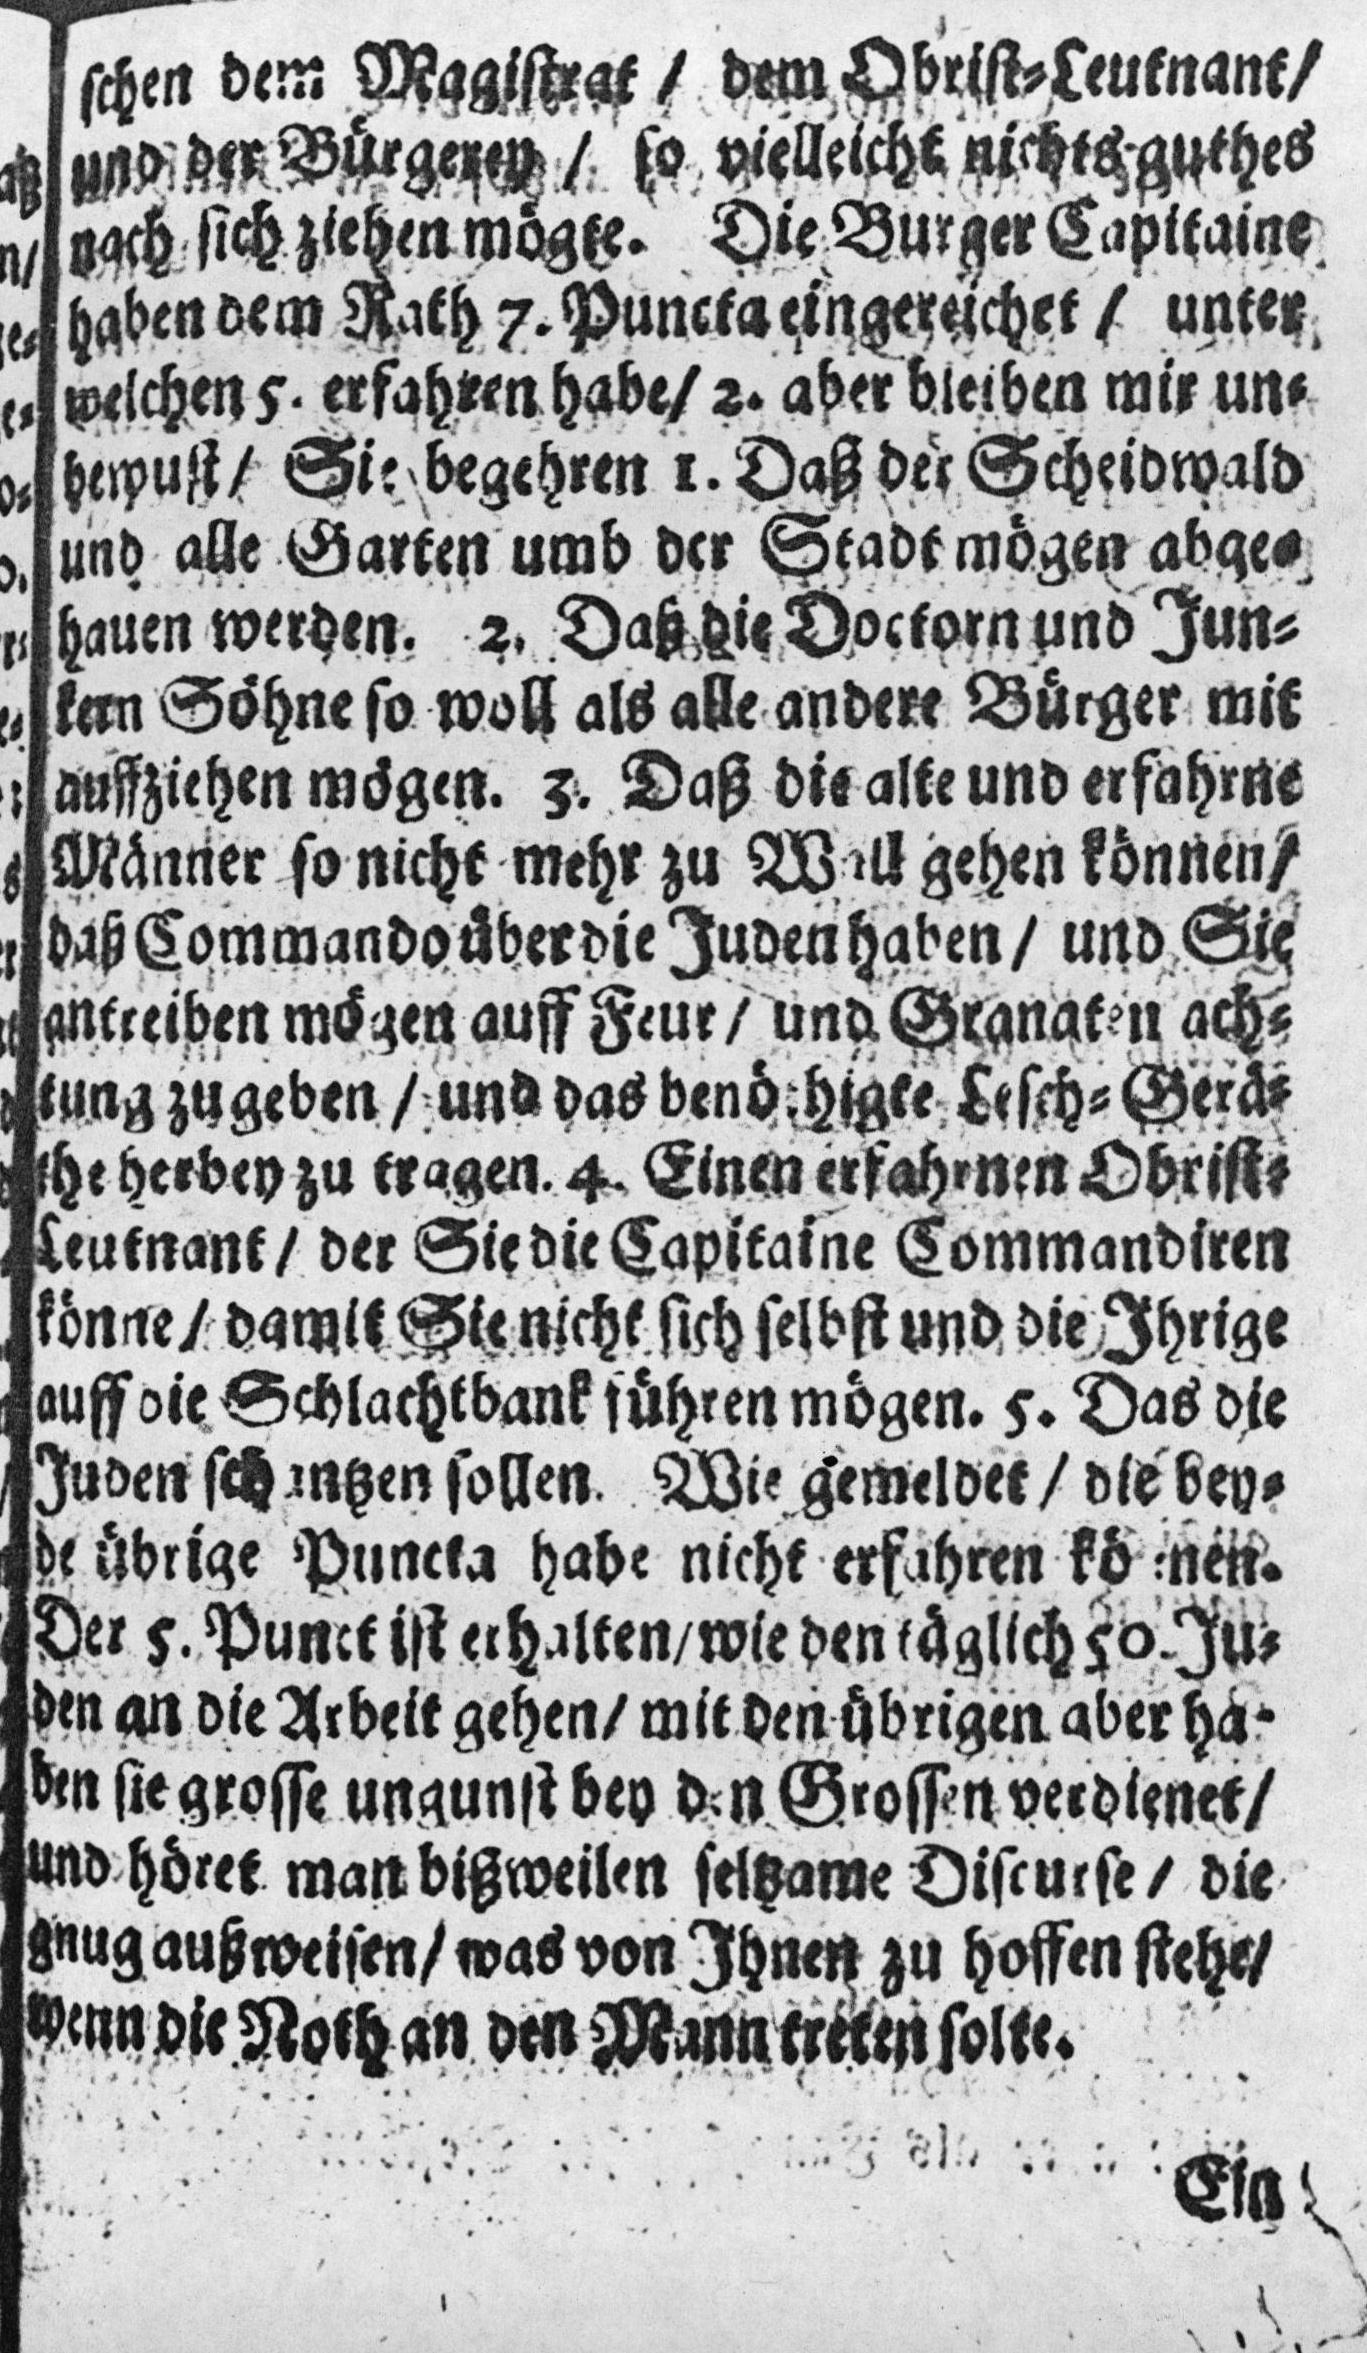 schen dem Magistrat / dem Obrist-Leutnant/
und der Bürgerey / so vielleicht nichts guthes
nach sich ziehen mögte. Die Burger Capitaine
haben dem Rath 7. Puncta eingereichet / unter
welchen 5. erfahren habe/ 2. aber bleiben mir un-
bewust/ Sie begehren 1. Daß der Scheidwald
und alle Garten umb der Stadt mögen abge-
hauen werden. 2. Daß die Doctorn und Jun-
kern Söhne so woll als alle andere Bürger mit
auffziehen mögen. 3. Daß die alte und erfahrne
Männer so nicht mehr zu Wall gehen können/
daß Commando über die Juden haben / und Sie
antreiben mögen auff Feur / und Granaten ach-
tung zu geben / und das benöthigte Lesch-Gerä-
the herbey zu tragen. 4. Einen erfahrnen Obrist-
Leutnant / der Sie die Capitaine Commandiren
könne / damit Sie nicht sich selbst und die Ihrige
auff die Schlachtbank führen mögen. 5. Das die
Juden schantzen sollen. Wie gemeldet / die bey-
de übrige Puncta habe nicht erfahren können.
Der 5. Punct ist erhalten/ wie den täglich 50. Ju-
den an die Arbeit gehen/ mit den übrigen aber ha-
ben sie grosse ungunst bey den Grossen verdienet/
und höret man bißweilen seltzame Discurse / die
gnug außweisen/ was von Ihnen zu hoffen stehe/
wenn die Noth an den Mann treten solte.
Ein